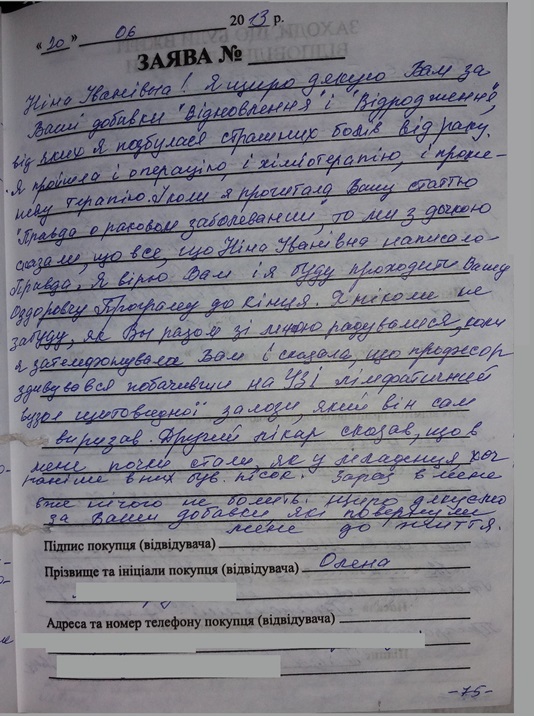 « 20 » 06 2013 р.
ЗАЯВА №
Ніна Іванівна! Я щиро дякую Вам за
Ваші добавки "Відновлення" і "Відродження",
від яких я позбулася страшних болів від раку.
Я пройшла і операцію, і хіміотерапію, і проме-
неву терапію. І коли я прочитала Вашу статтю
"Правда о раковом заболевании", то ми з дочкою
сказали, що все, що Ніна Іванівна написала-
Правда. Я вірю Вам і я буду проходити Вашу
Оздоровчу Програму до кінця. Я ніколи не
забуду, як Ви разом зі мною радувалися, коли
я зателефонувала Вам і сказала, що професор
здивувався побачивши на УЗІ лімфатичний
вузол щитовидної залози, який він сам
вирізав. Другий лікар сказав, що в
мене почки стали як у младенца, хоч
раніше в них був пісок. Зараз в мене
вже нічого не болить. Щиро дякуємо
за Ваши добавки які повернули
мене до життя.
Підпис покупця (відвідувача)
Прізвище та ініціали покупця (відвідувача) Олена
Адреса та номер телефону покупця (відвідувача)
-75-